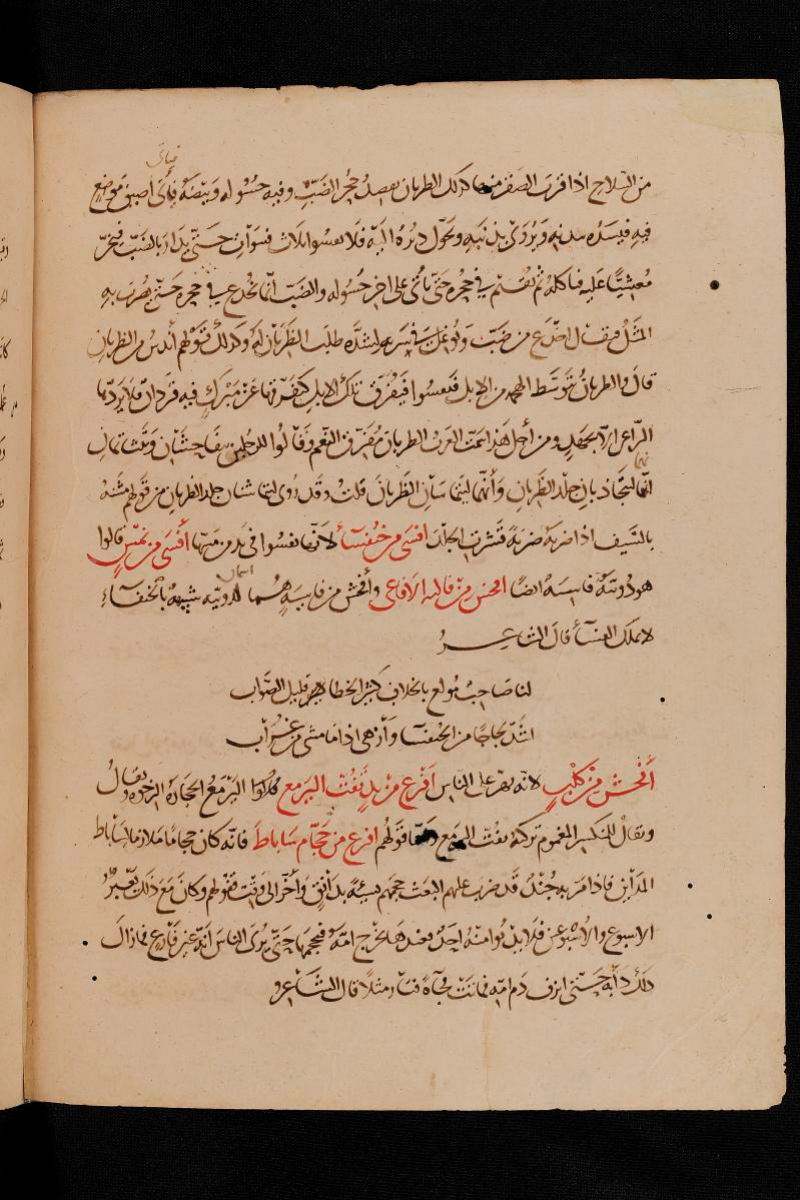 من السلاح اذا قرب الصقر منها كذلك الظربان يقصد جحر الضب وفيه حسوله وبيضه فيأتى اضيق موضع
فيه فيسده بيديه ويروى بذنبه ويحول دبره اليه فلا يفسوا ثلاث فسوات حتى يدار بالضب فيخر
مغشيا عليه فيأكله ثم يقيم فى جحره حتى يأتى على اخر حسوله والضب انما يخدع فى جحره حتى يضرب به
المثل فيقال اخدع من ضب ويوغل فى سربه لشدة طلب الظربان له وكذلك قولهم اندس من الظربان
قال والظربان يتوسط الهجمة من الابل فيفسوا فتفرق تلك الابل كتفرقها عن مبرك فيه قردان فلا يردها
الراعى الا بجهد ومن اجل هذا سمت العرب الظربان مفرق النعم وقالوا للرجلين يتفاحشان ويتشاتمان
انهما ليتجاذبان جلد الظربان وانهما ليتماسان الظربان قلت وقد روى ليتماشنان جلد الظربان من قولهم مشنه
بالسيف اذا ضربه ضربة قشرت الجلد افسى من خنفساء لانها تفسوا فى يد من مسها أفسى من نمس قالوا
هو دويبة فاسية ايضا افحش من فالية الافاعى وأفحش من فاسية هما اسمان لدويبة شبيهة بالخنفساء
لا تملك الفساء قال الشاعر
لنا صاحب مولع بالخلاف كثير الخطاء قليل الصواب
اشد لجاجا من الخنفساء وأزهى اذا ما مشى من غراب
أفحش من كلب لانه يهر على الناس افرغ من يد تفت اليرمع قالوا اليرمع الحجارة الرخوة ويقال
ويقال للمنكسر المغموم تركته يفت اليرمع واما قولهم افرغ من حجام ساباط فانه كان حجاما ملازما لساباط
المداين فاذا مر به جند قد ضرب عليهم البعث حجمهم نسيئة بدانق واحد الى وقت قفولهم وكان مع ذلك يعبر
الاسبوع والاسبوعين فلا يدنوا منه احد فعندها يخرج امه فيحجمها حتى يرى الناس انه غير فارغ فما زال
ذلك دأبه حتى انزف دم امه فماتت فجأة فسار مثلا قال الشاعر